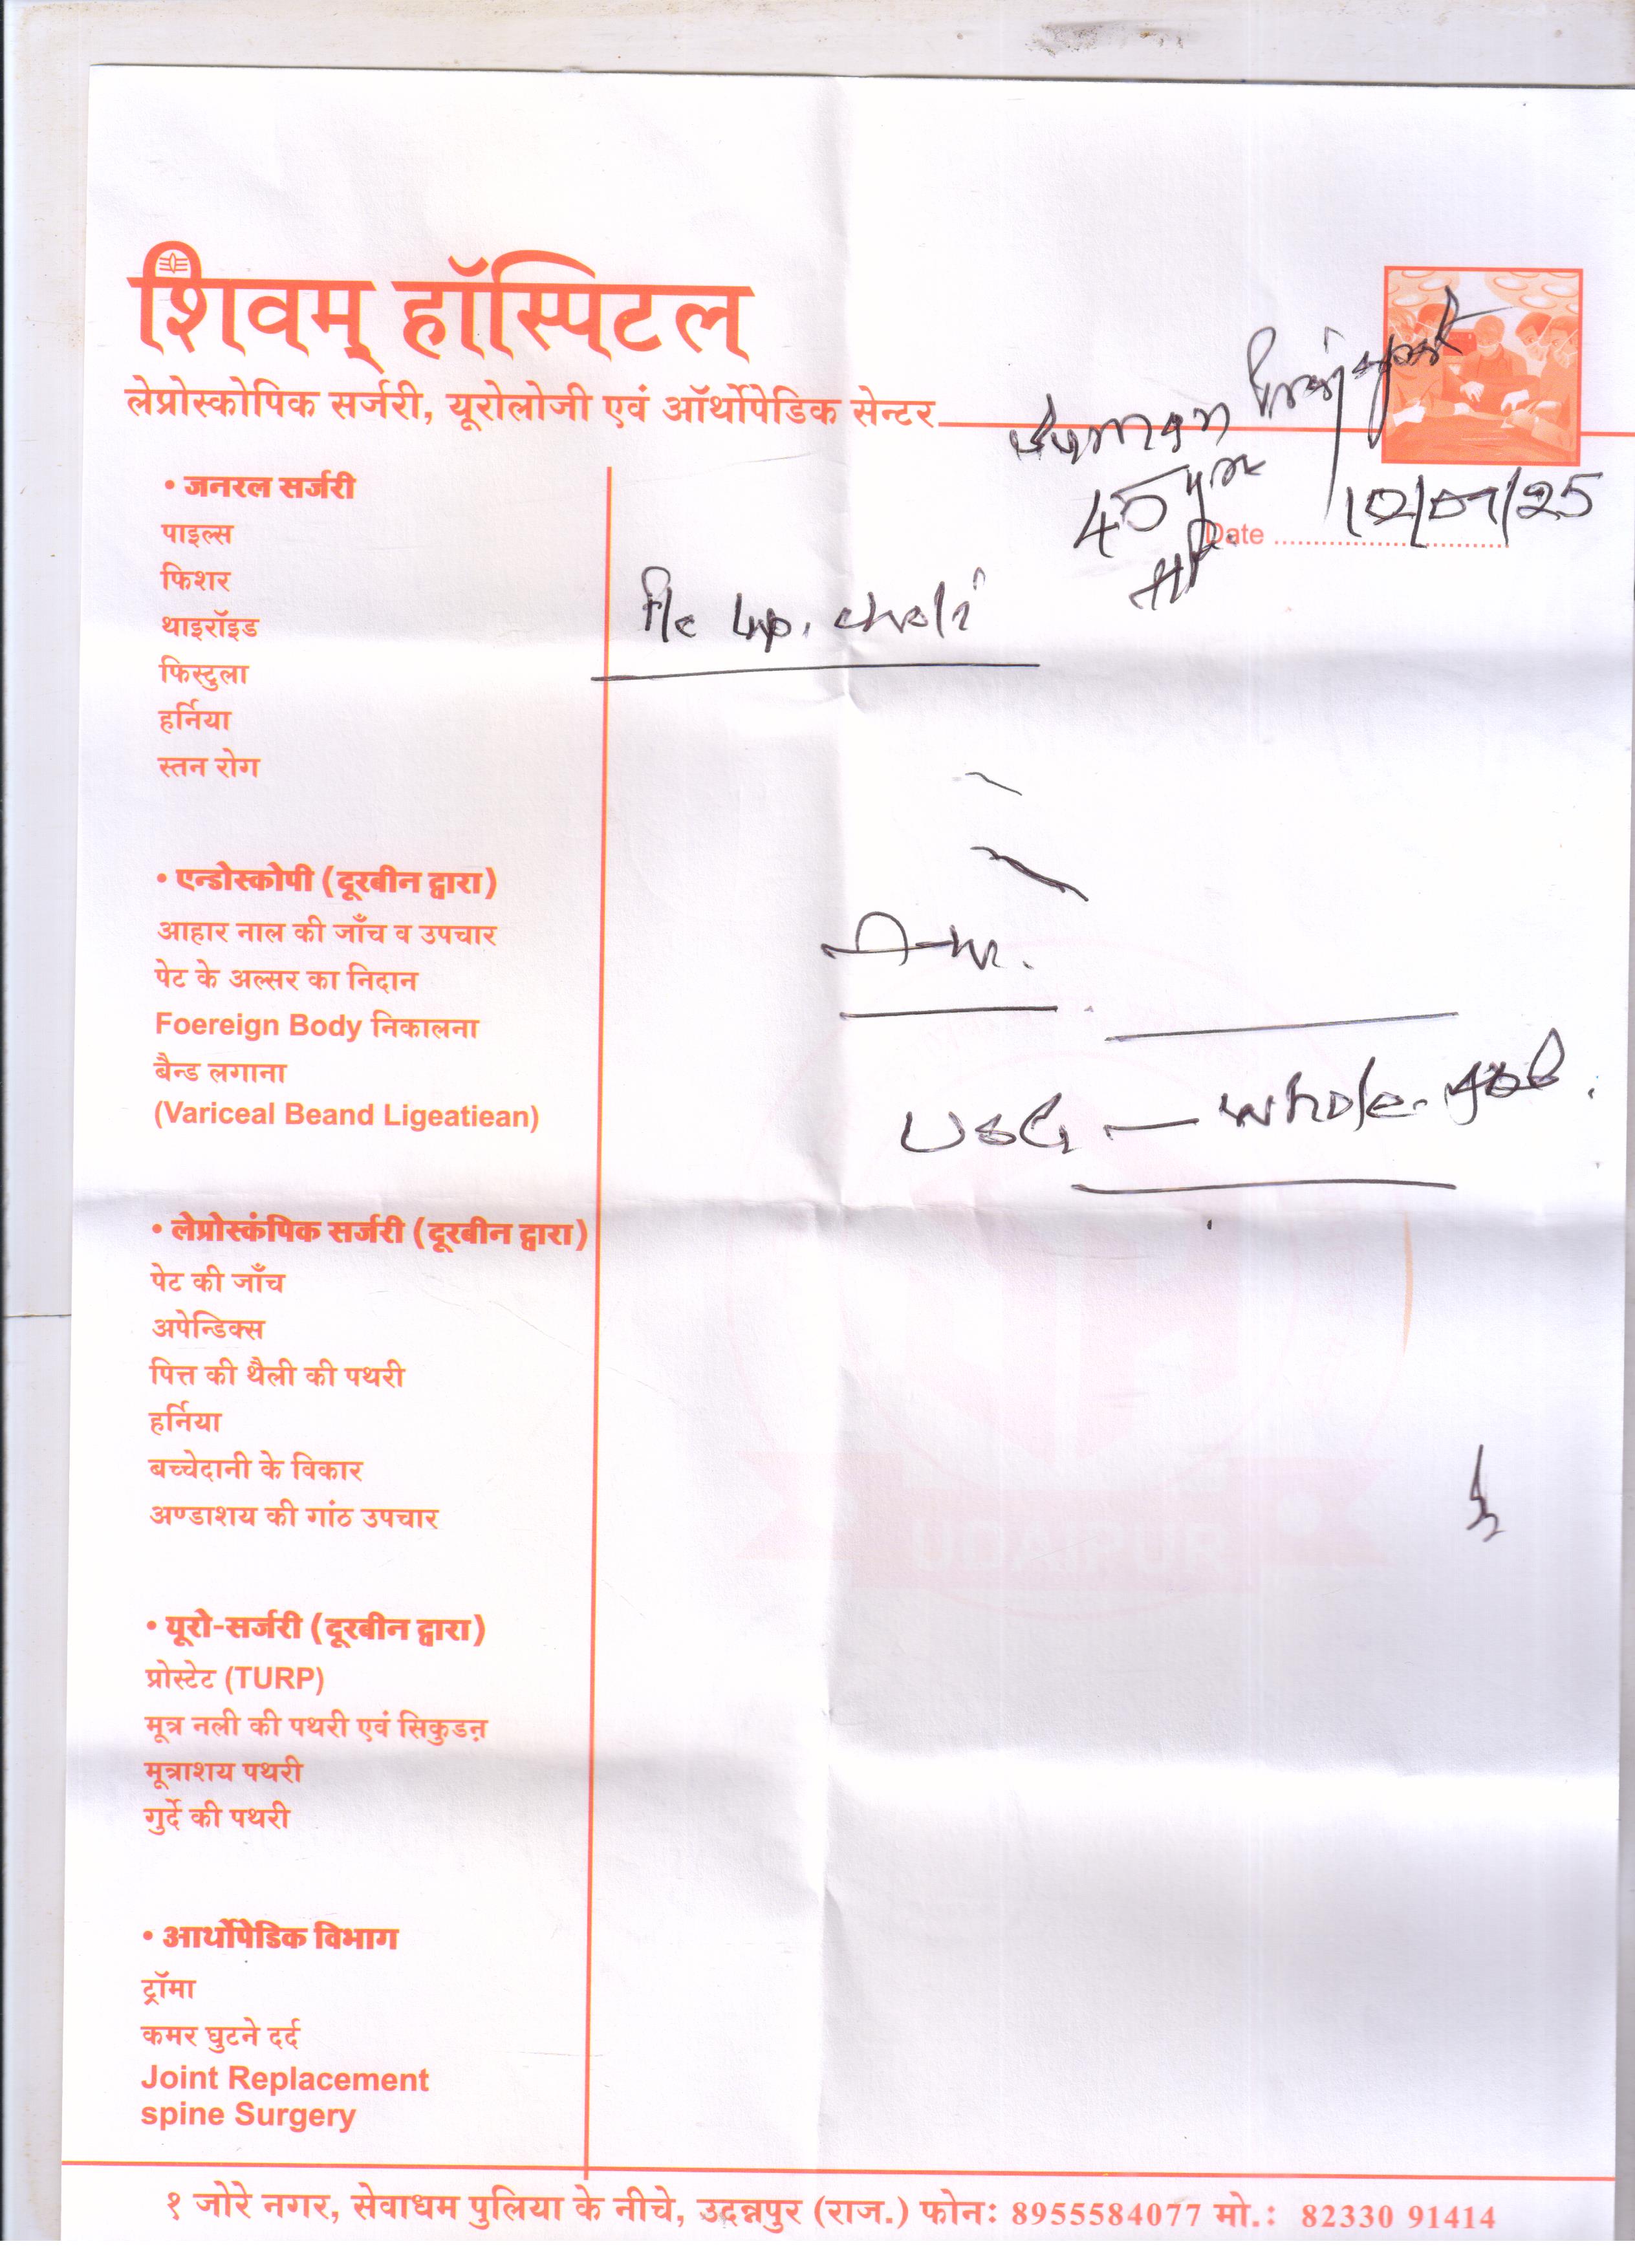 शिवम् हॉस्पिटल
लेप्रोस्कोपिक सर्जरी, यूरोलोजी एवं ऑर्थोपेडिक सेन्टर
Suman Prajapat
45 yrs
Date 12/07/25
• जनरल सर्जरी
पाइल्स
फिशर
थाइरॉइड
फिस्टुला
हर्निया
स्तन रोग
• एन्डोस्कोपी (दूरबीन द्वारा)
आहार नाल की जाँच व उपचार
पेट के अल्सर का निदान
Foereign Body निकालना
बैन्ड लगाना
(Variceal Beand Ligeatiean)
• लेप्रोस्कंपिक सर्जरी (दूरबीन द्वारा)
पेट की जाँच
अपेन्डिक्स
पित्त की थैली की पथरी
हर्निया
बच्चेदानी के विकार
अण्डाशय की गांठ उपचार
• यूरो-सर्जरी (दूरबीन द्वारा)
प्रोस्टेट (TURP)
मूत्र नली की पथरी एवं सिकुडऩ
मूत्राशय पथरी
गुर्दे की पथरी
• आर्थोपेडिक विभाग
ट्रॉमा
कमर घुटने दर्द
Joint Replacement
spine Surgery
USG — whole
UDAIPUR
१ जोरे नगर, सेवाधम पुलिया के नीचे, उदन्नपुर (राज.) फोनः 8955584077 मो.: 82330 91414